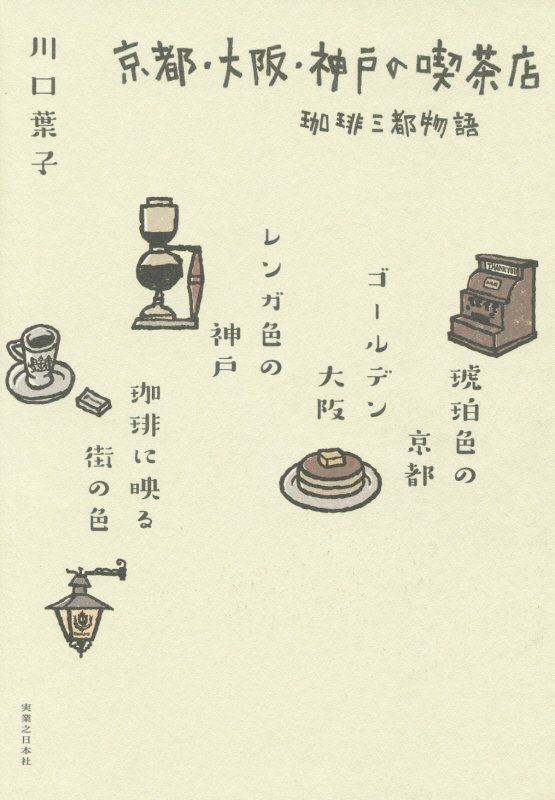 京都・大阪・神戸の喫茶店
珈琲三都物語
川口葉子
THANKYOU
琥珀色の
京都
ゴールデン
大阪
レンガ色の
神戸
珈琲に映る
街の色
実業之日本社